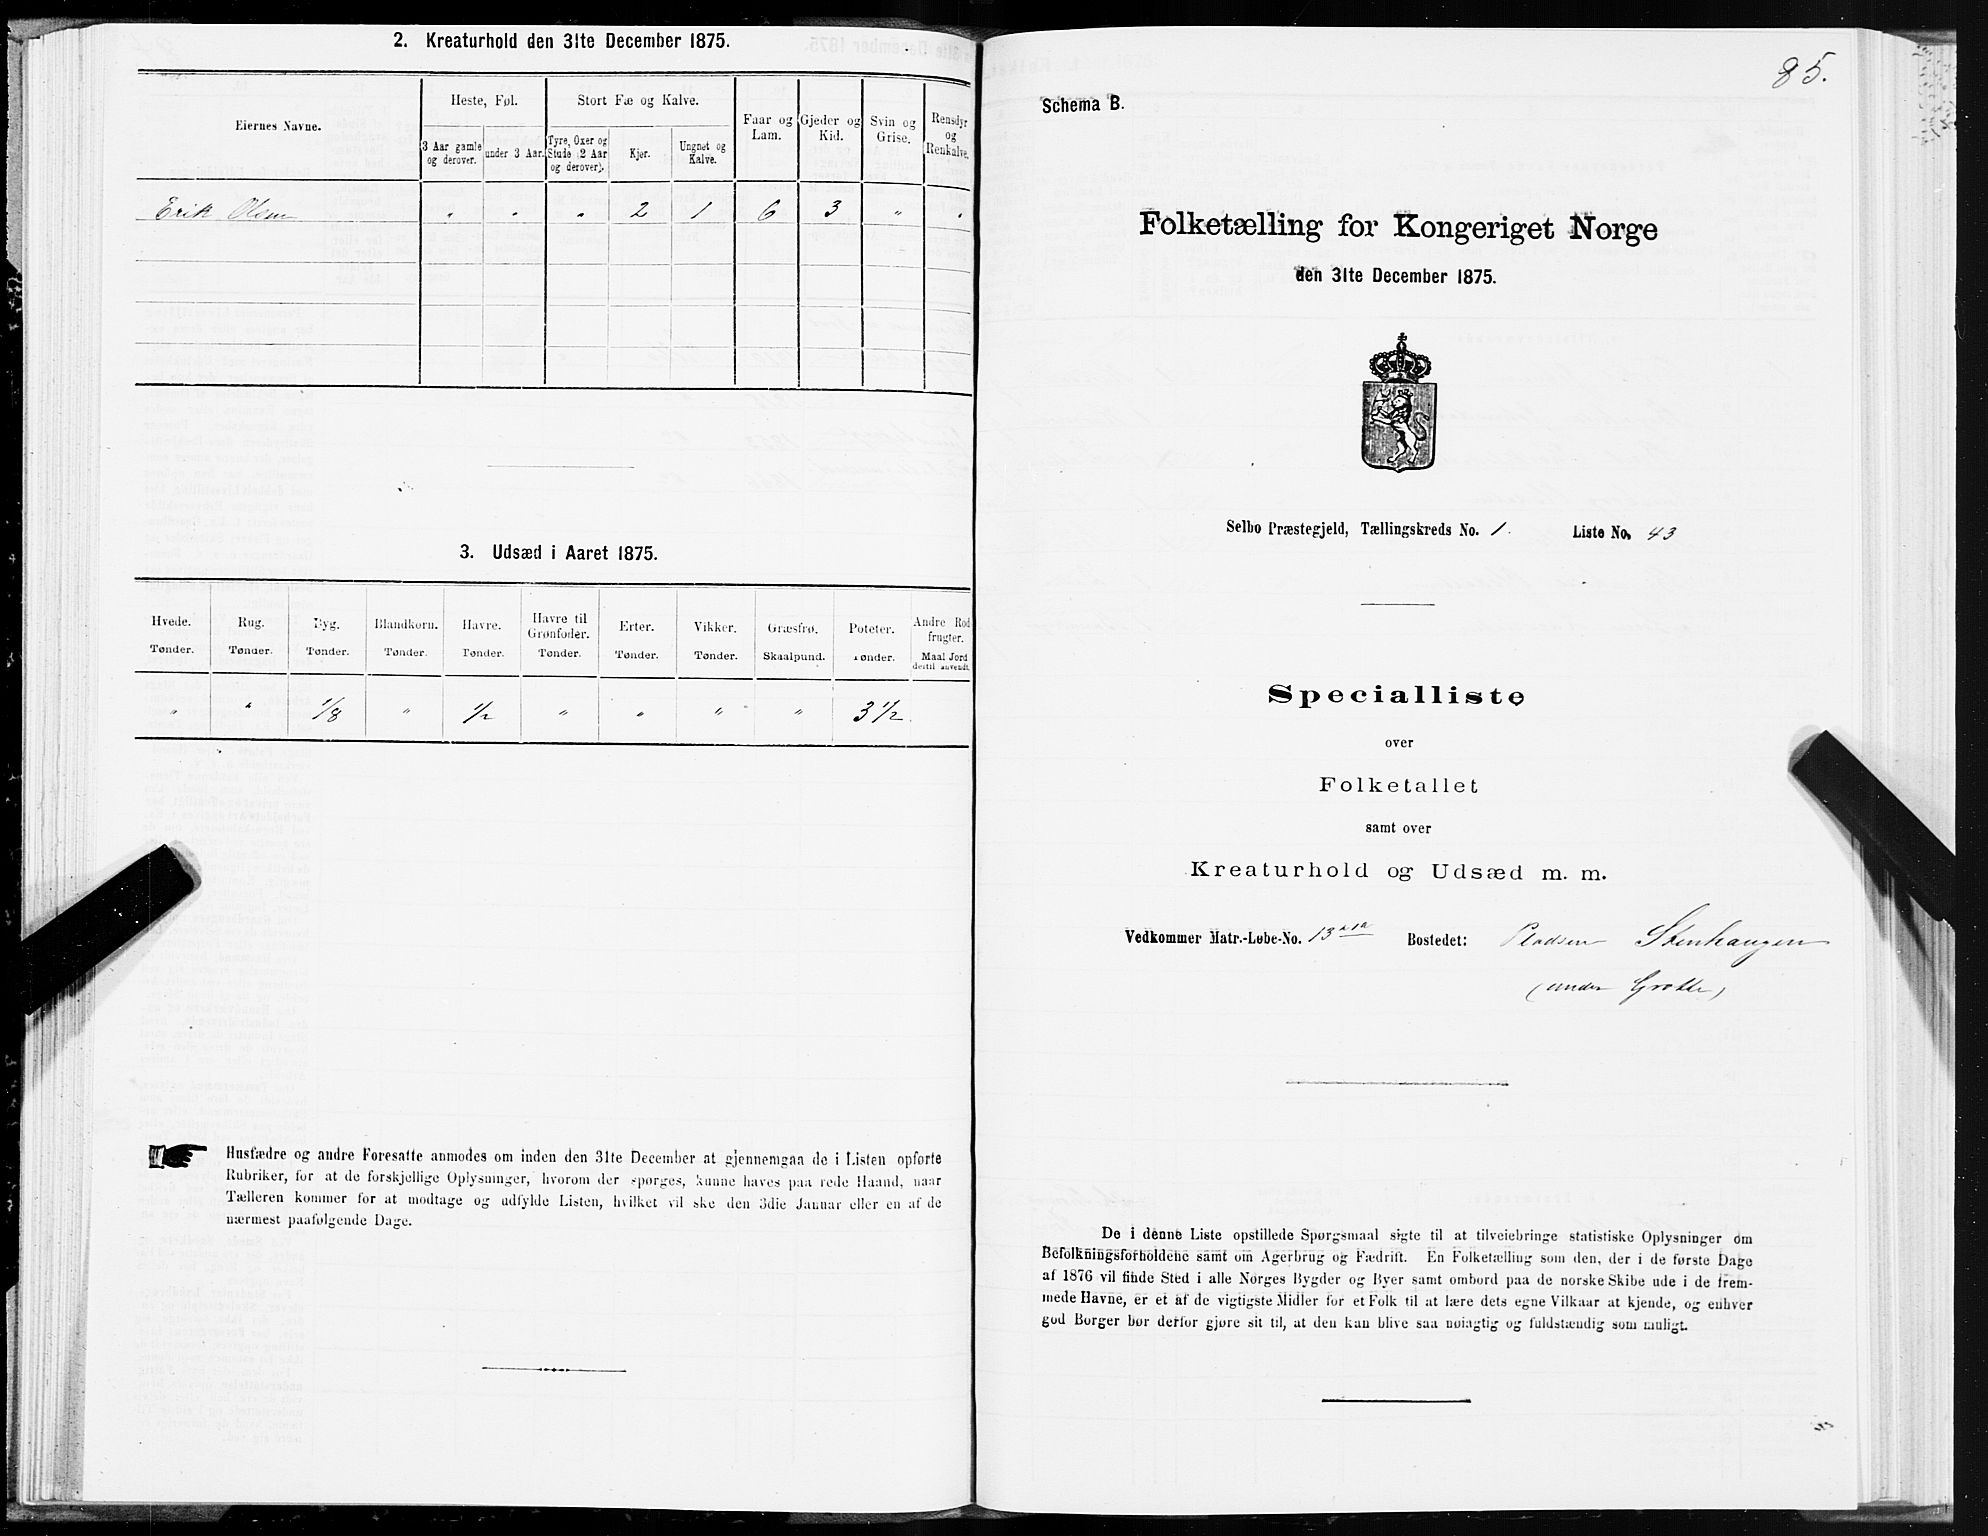 2. Kreaturhold den 31te December 1875.
Eiernes Navne.
Heste, Føl.
Stort Fæ og Kalve.
Faar og Lam.
Gjeder og Kid.
Svin og Grise.
Rensdyr og Renkalve.
3 Aar gamle og derover.
under 3 Aar.
Tyre, Oxer og Stude (2 Aar og derover).
Kjør.
Ungnet og Kalve.
Erik Olsen " " " 2 1 6 3 " "
3. Udsæd i Aaret 1875.
Hvede. Rug. Byg. Blandkorn. Havre. Havre til Grønfoder. Erter. Vikker. Græsfrø. Poteter. Andre Rodfrugter.
Tønder. Tønder. Tønder. Tønder. Tønder. Tønder. Tønder. Tønder. Skaalpund. Tønder. Maal Jord dertil anvendt.
" " 1/8 " 1/2 " " " " 3 1/2
Husfædre og andre Foresatte anmodes om inden den 31te December at gjennemgaa de i Listen opførte
Rubriker, for at de forskjellige Oplysninger, hvorom der spørges, kunne haves paa rede Haand, naar
Tælleren kommer for at modtage og udfylde Listen, hvilket vil ske den 3die Januar eller en af de
nærmest paafølgende Dage.
85.
Schema B.
Folketælling for Kongeriget Norge
den 31te December 1875.
Selbo Præstegjeld, Tællingskreds No. 1. Liste No. 43
Specialliste
over
Folketallet
samt over
Kreaturhold og Udsæd m. m.
Vedkommer Matr.-Løbe-No. 13 Bostedet: Pladsen Stenhaugen
(under Grøtte)
De i denne Liste opstillede Spørgsmaal sigte til at tilveiebringe statistiske Oplysninger om
Befolkningsforholdene samt om Agerbrug og Fædrift. En Folketælling som den, der i de første Dage
af 1876 vil finde Sted i alle Norges Bygder og Byer samt ombord paa de norske Skibe ude i de frem-
mede Havne, er et af de vigtigste Midler for et Folk til at lære dets egne Vilkaar at kjende, og enhver
god Borger bør derfor gjøre sit til, at den kan blive saa nøiagtig og fuldstændig som muligt.